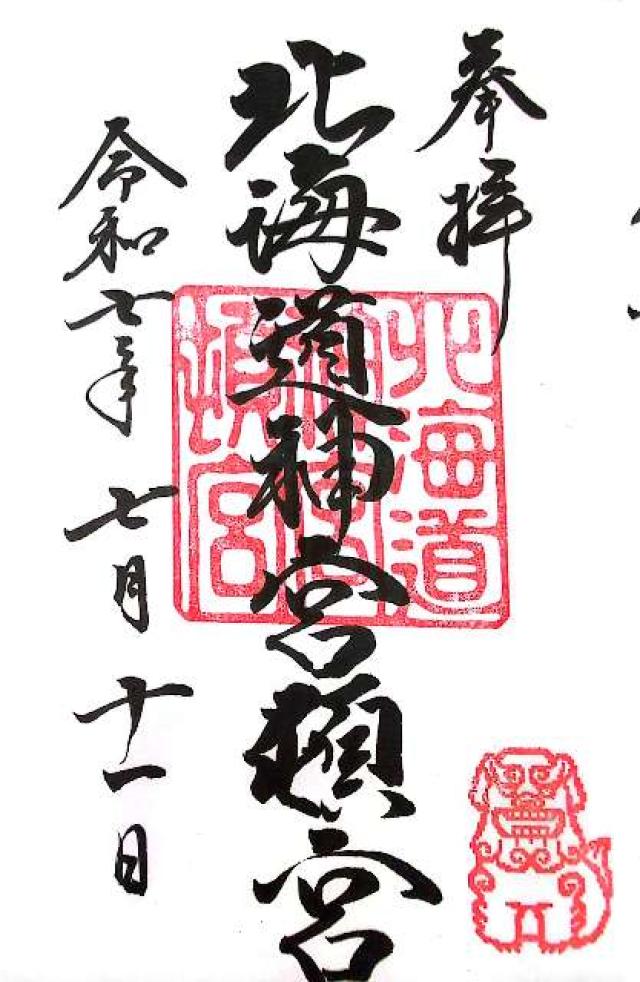 奉拝
北海道神宮頓宮
北海道
神宮
頓宮
令和七年七月十一日